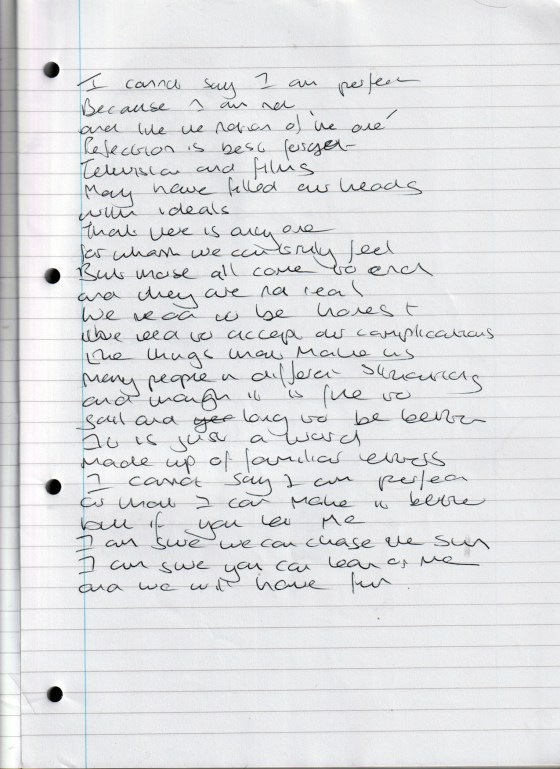 I cannot say I am perfect
Because I am not
and like the notion of 'the one'
Perfection is best forget
Television and films
May have filled our heads
with ideals
That there is only one
for whom we can truly feel
But those all come to end
and they are not real
We need to be honest
We need to accept our complications
The things that Make us
Many people in different situations
and though it is fine to
and long to be better
It is just a word
made up of familiar letters
I cannot say I am perfect
or that I can Make it better
but if you let Me
I am sure we can chase the sun
I am sure you can lean on Me
and we will have fun.